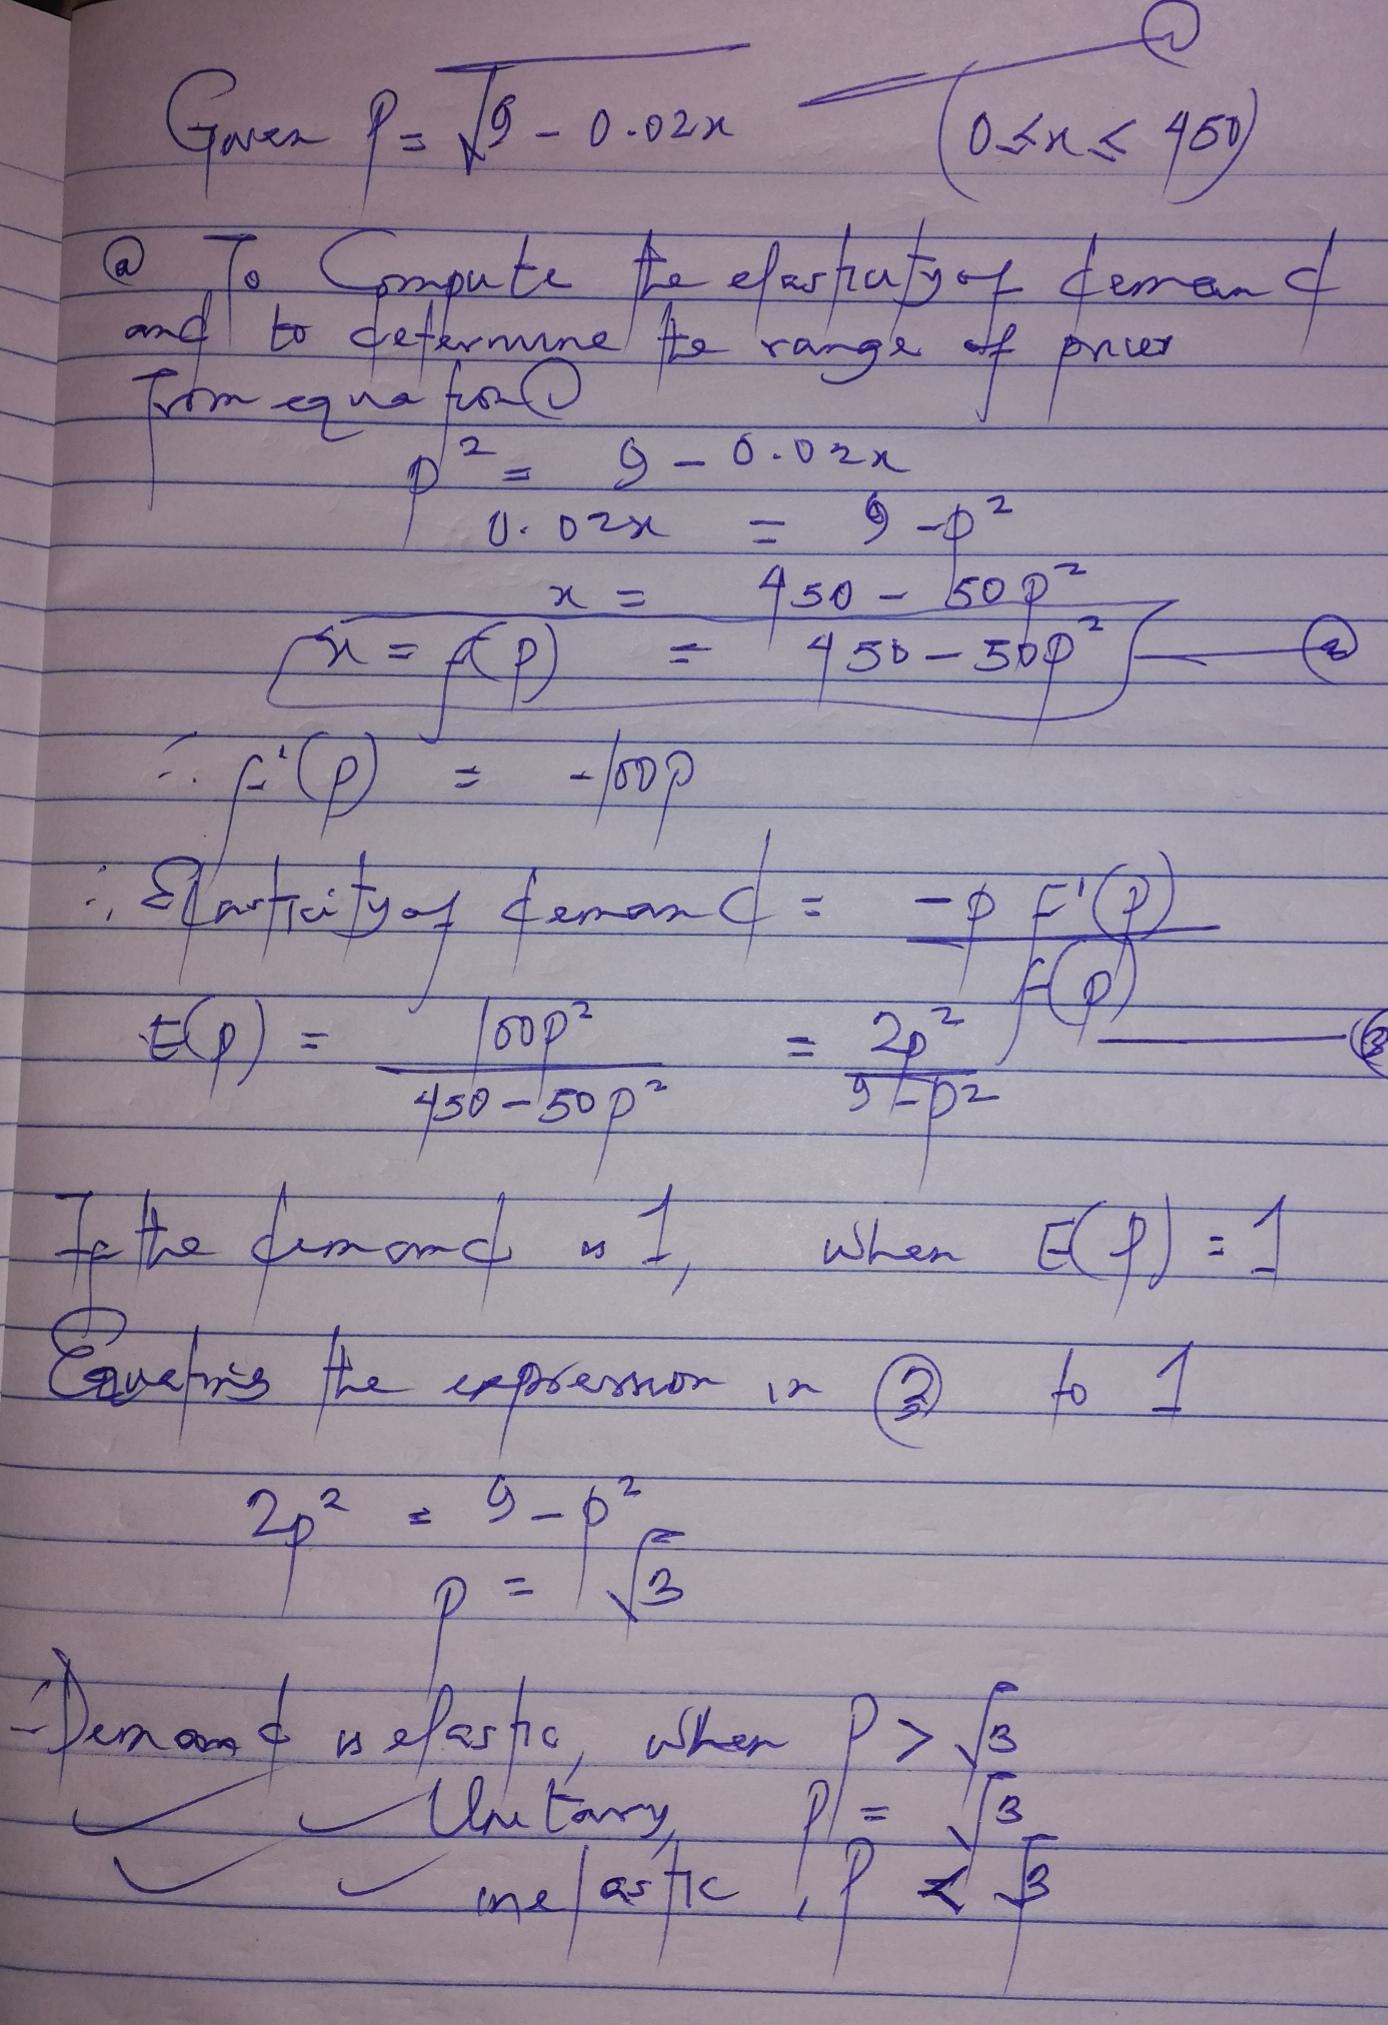 ①
Given P = √9 - 0.02x (0 ≤ x ≤ 450)
ⓐ To Compute the elasticity of demand
and to determine the range of prices
From equation ①
p² = 9 - 0.02x
0.02x = 9 - p²
x = 450 - 50p²
x = f(p) = 450 - 50p² ②
∴ f'(p) = -100p
∴ Elasticity of demand = -p F'(p) / f(p)
E(p) = 100p² / 450 - 50p² = 2p² / 9 - p² ③
If the demand is 1, when E(p) = 1
Equating the expression in ③ to 1
2p² = 9 - p²
p = √3
∴ Demand is elastic, when P > √3
✓ ✓ Unitary, P = √3
✓ ✓ inelastic, P < √3